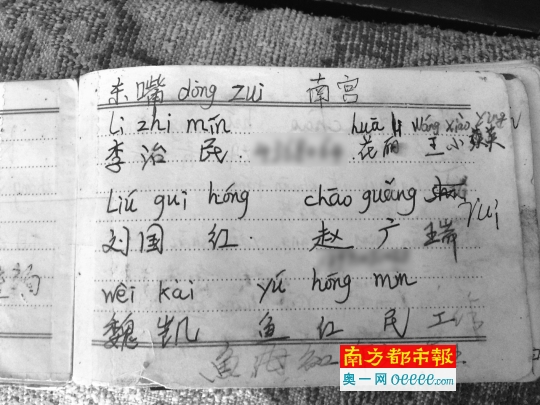 东嘴 dōng zuǐ 南宫
li zhi mín huā li wáng xiǎo yīng
李治民 花丽 王小英
Liú gui hóng chāo guǎng rui
刘国红 赵广瑞
wēi kǎi yú hóng mín
魏凯 鱼红民
南方都市報
奥一网 oeeee.com